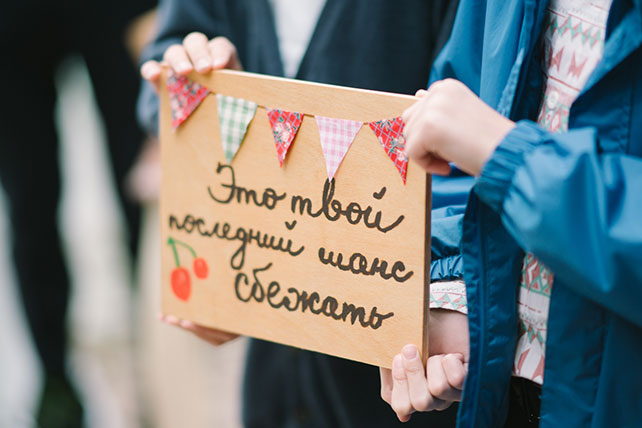 Это твой
последний шанс
сбежать